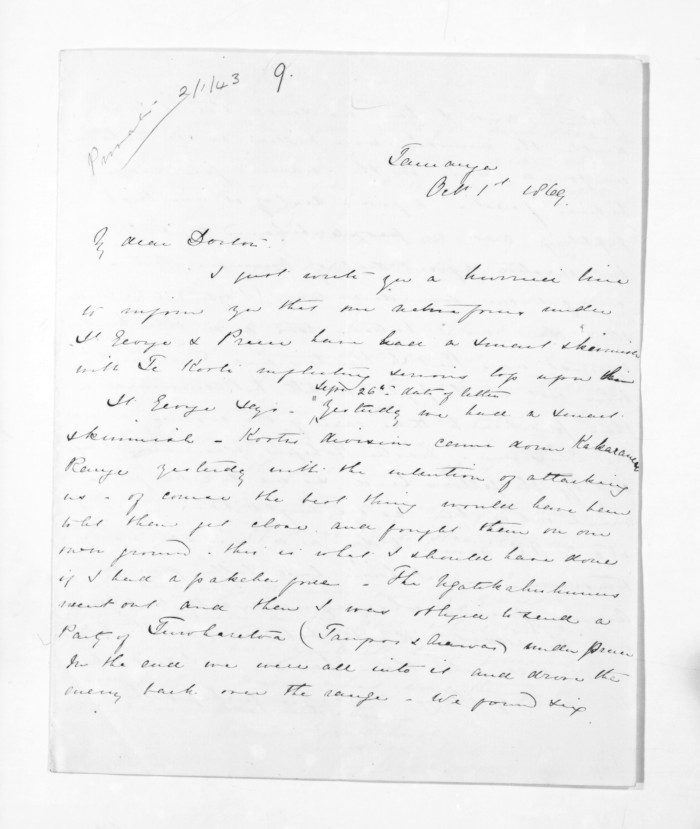 2/1/43 9.
Tauranga
Octr 1st 1869.
My dear Doctor
I just write you a hurried line
to inform you that our native forces under
St George & Preece have had a smart "skirmish"
with Te Kooti inflicting serious loss upon him
Sepr 26th date of letter
St George says - "Yesterday we had a smart
skirmish - Kootis division came down Kakaramea
Range yesterday with the intention of attacking
us - of course the best thing would have been
to let them get close and fought them on our
own ground. this is what I should have done
if I had a pakeha force - The Ngatikahuhunus
went out and then I was obliged to send a
Party of Tuwharetoa (Taupos & Arawas) under Preece
In the end we were all into it and drove the
enemy back over the range - We found six